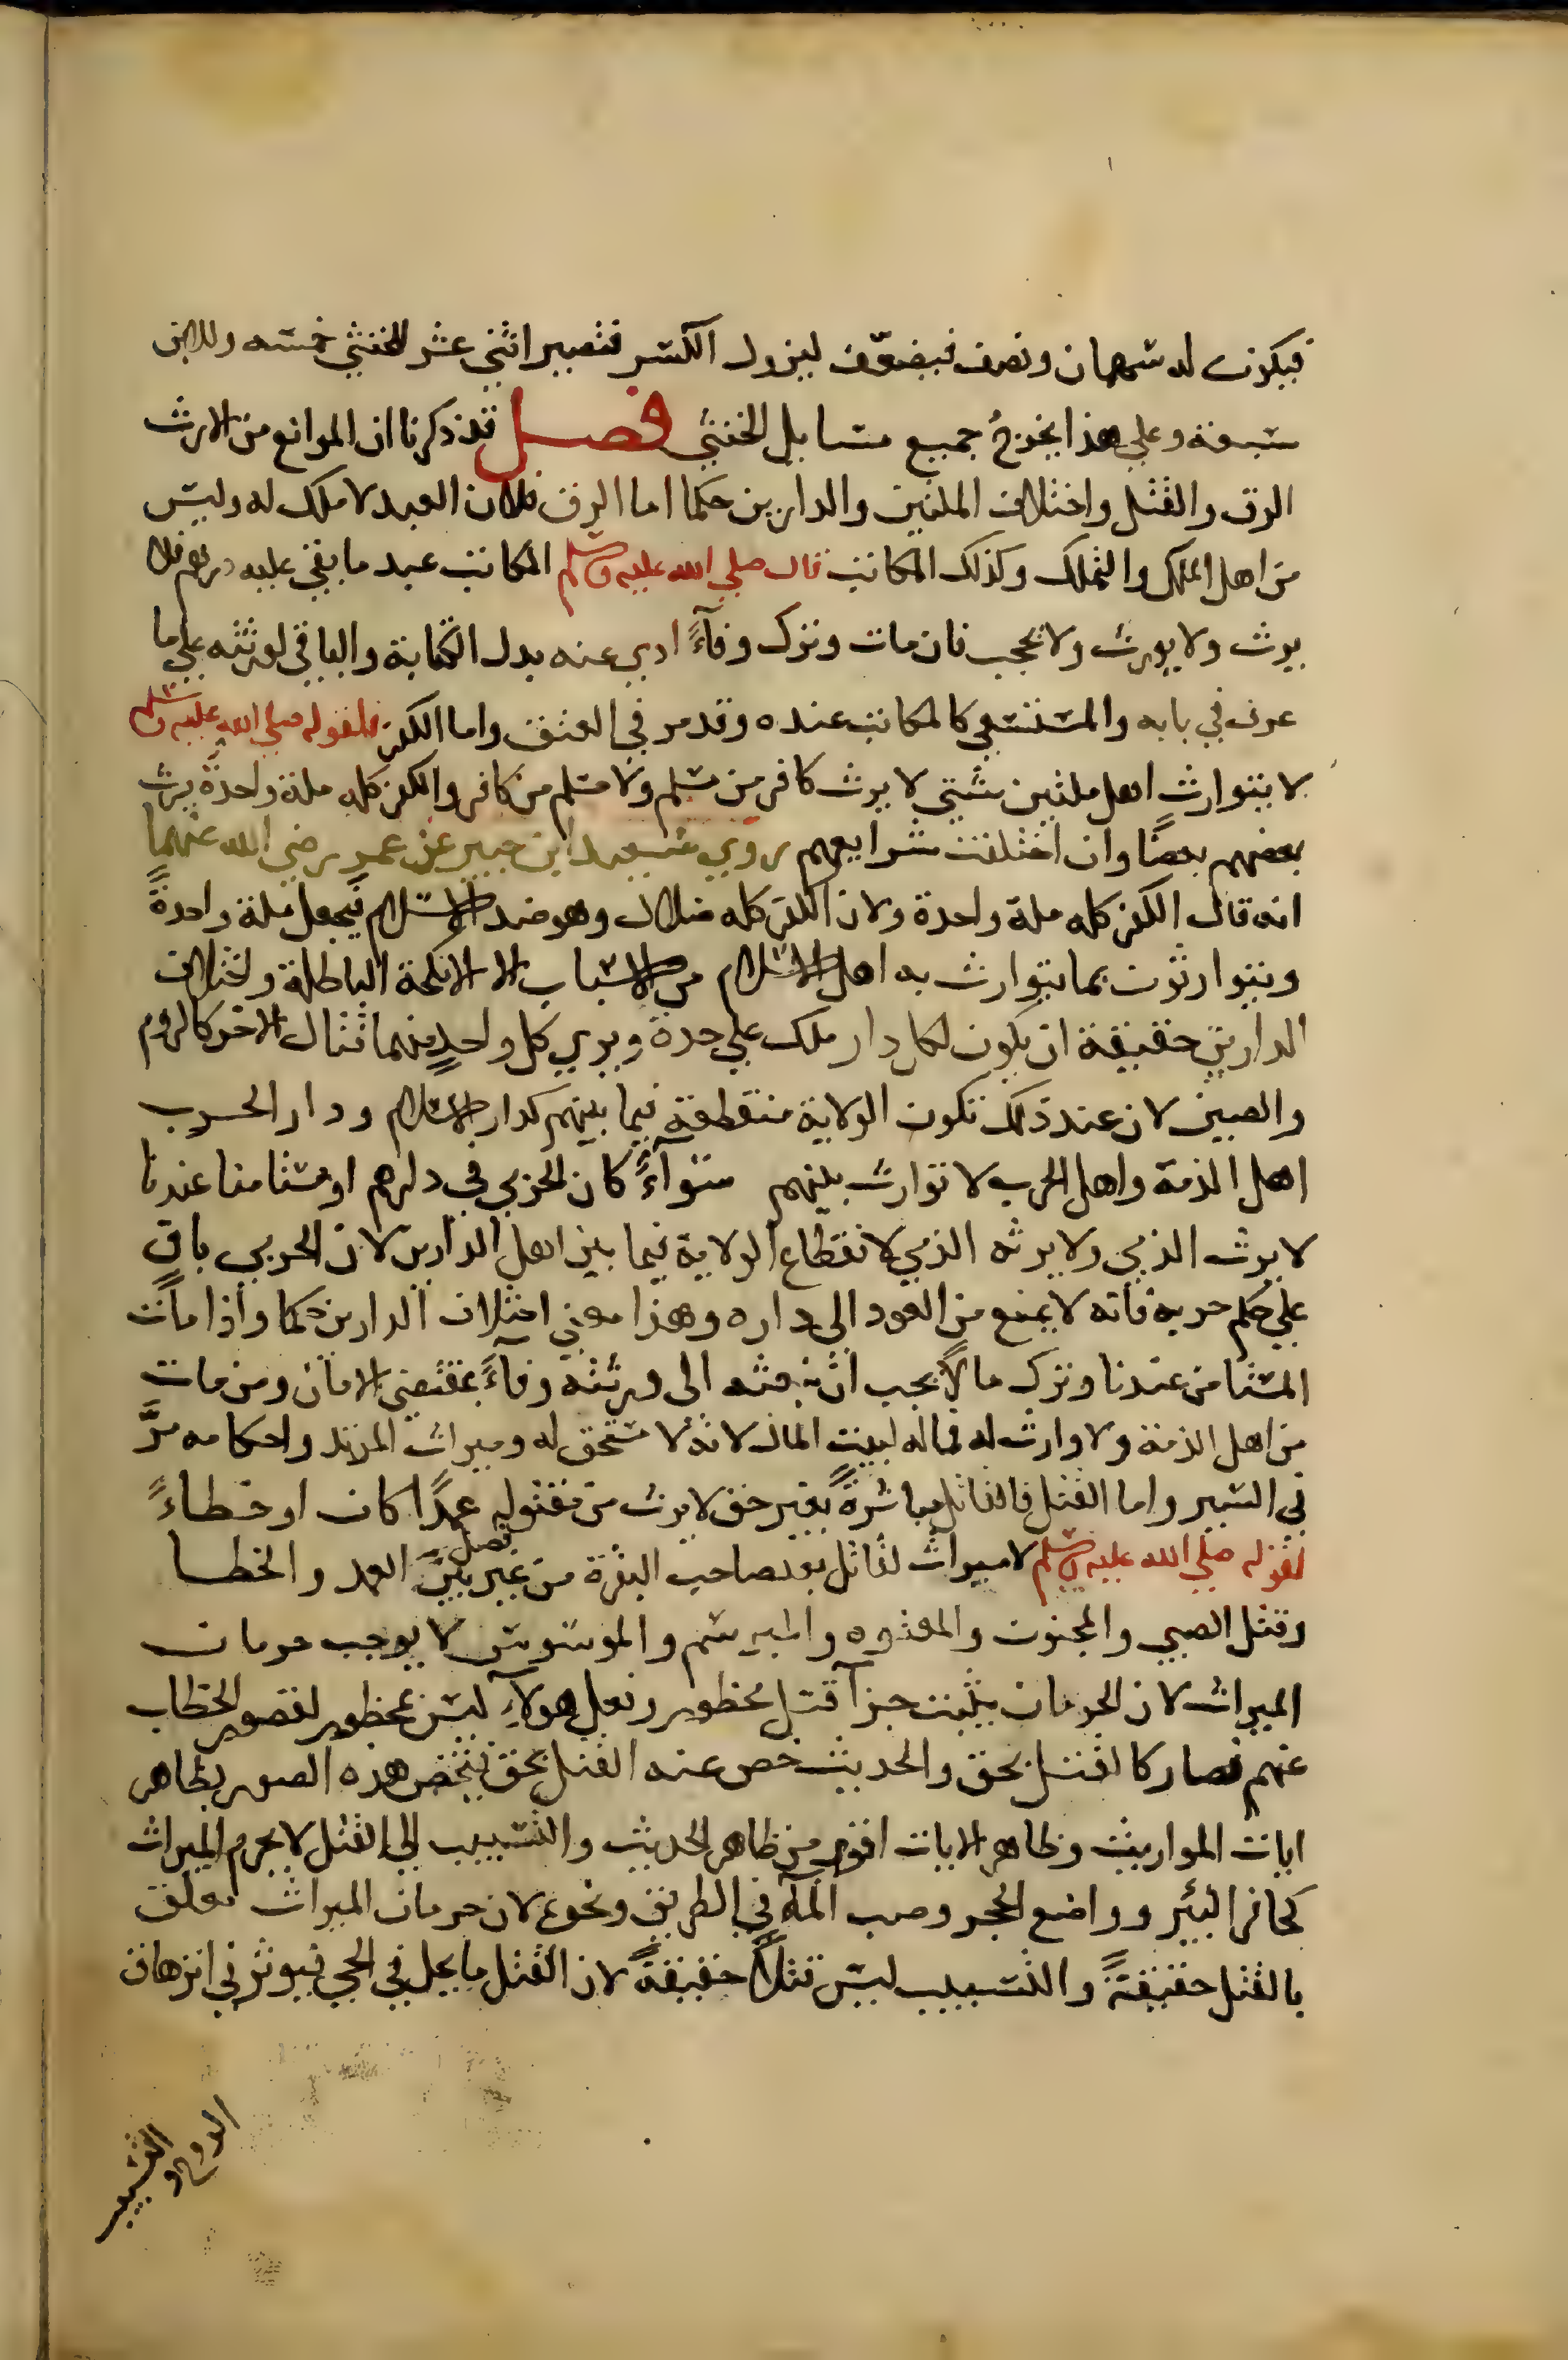 فيكون له سهمان ونصف فيضعّف ليزول الكسر فتصير اثنى عشر للخنثي خمسه وللابن
سبعة وعلي هذا يخرجُ جميع مسايل الخنثي فصل قد ذكرنا ان الموانع من الارث
الرق والقتل واختلاف الملتين والدارين حكما اما الرق فلان العبد لا ملك له وليس
من اهل الملك والتملك وكذلك المكاتب قال صلي الله عليه وسلم المكاتب عبد ما بقي عليه درهم فلا
يرث ولا يورث ولا يحجب فان مات وترك وفآءً ادي عنه بدل الكتابة والباقي لورثته علي ما
عرف في بابه والمستسعي كالمكاتب عنده وقد مر في العتق واما الكفر فلقوله صلي الله عليه وسلم
لا يتوارث اهل ملتين بشتي لا يرث كافر من مسلم ولا مسلم من كافر والكفر كله ملة واحدةً يرث
بعضهم بعضًا وان اختلفت شرايعهم روي سعيد ابن جبير عن عمر رضي الله عنهما
انه قال الكفر كله ملة واحدة ولان الكفر كله ضلال وهو ضد الاسلام فيجعل ملة واحدةً
ويتوارثون بما يتوارث به اهل الاسلام من الاسباب الا الانكحة الباطلة واختلاف
الدارين حقيقة ان يكون لكل دار ملك علي حدة ويري كل واحدٍ منهما قتال الاخر كالروم
والصين لان عند ذلك تكون الولاية منقطعة فيما بينهم كدار الاسلام ودار الحرب
اهل الذمة واهل الحرب لا توارث بينهم سوآءً كان الحربي في دارهم او مستامنا عندنا
لا يرث الذمي ولا يرثه الذمي لانقطاع الولاية فيما بين اهل الدارين لان الحربي باق
علي حكم حربه فانه لا يمنع من العود الى داره وهذا معني اختلاف الدارين حكما واذا مات
المستامن عندنا وترك مالًا يجب ان نبعثه الى ورثته وفآءً بمقتضي الامان ومن مات
من اهل الذمة ولا وارث له فماله لبيت المال لانه لا مستحق له وميراث المرتد واحكامه مرَّ
في السير واما القتل فالقاتل مباشرةً بغير حق لا يرث من مقتوله عمدًا كان او خطاءً
لقوله صلي الله عليه وسلم لا ميراث لقاتل بعد صاحب البقرة من غير فصل بين العمد والخطا
وقتل الصبي والمجنون والمعتوه والمبرسم والموسوس لا يوجب حرمان
الميراث لان الحرمان يثبت جزآ قتل محظور وفعل هولآءِ ليس بمحظور لقصور الخطاب
عنهم فصار كالقتل بحق والحديث خص عنه القتل بحق فتخص هذه الصور بظاهر
ايات المواريث وظاهر الايات اقوي من ظاهر الحديث والتسبيب الي القتل لا يحرم الميراث
كحافر البئر وواضع الحجر وصب المآء في الطريق ونحوه لان حرمان الميراث تعلق
بالقتل حقيقةً والتسبيب ليس قتلاً حقيقةً لان القتل ما يحل في الحي فيوثر في انزهاق
الروح والتسبيب